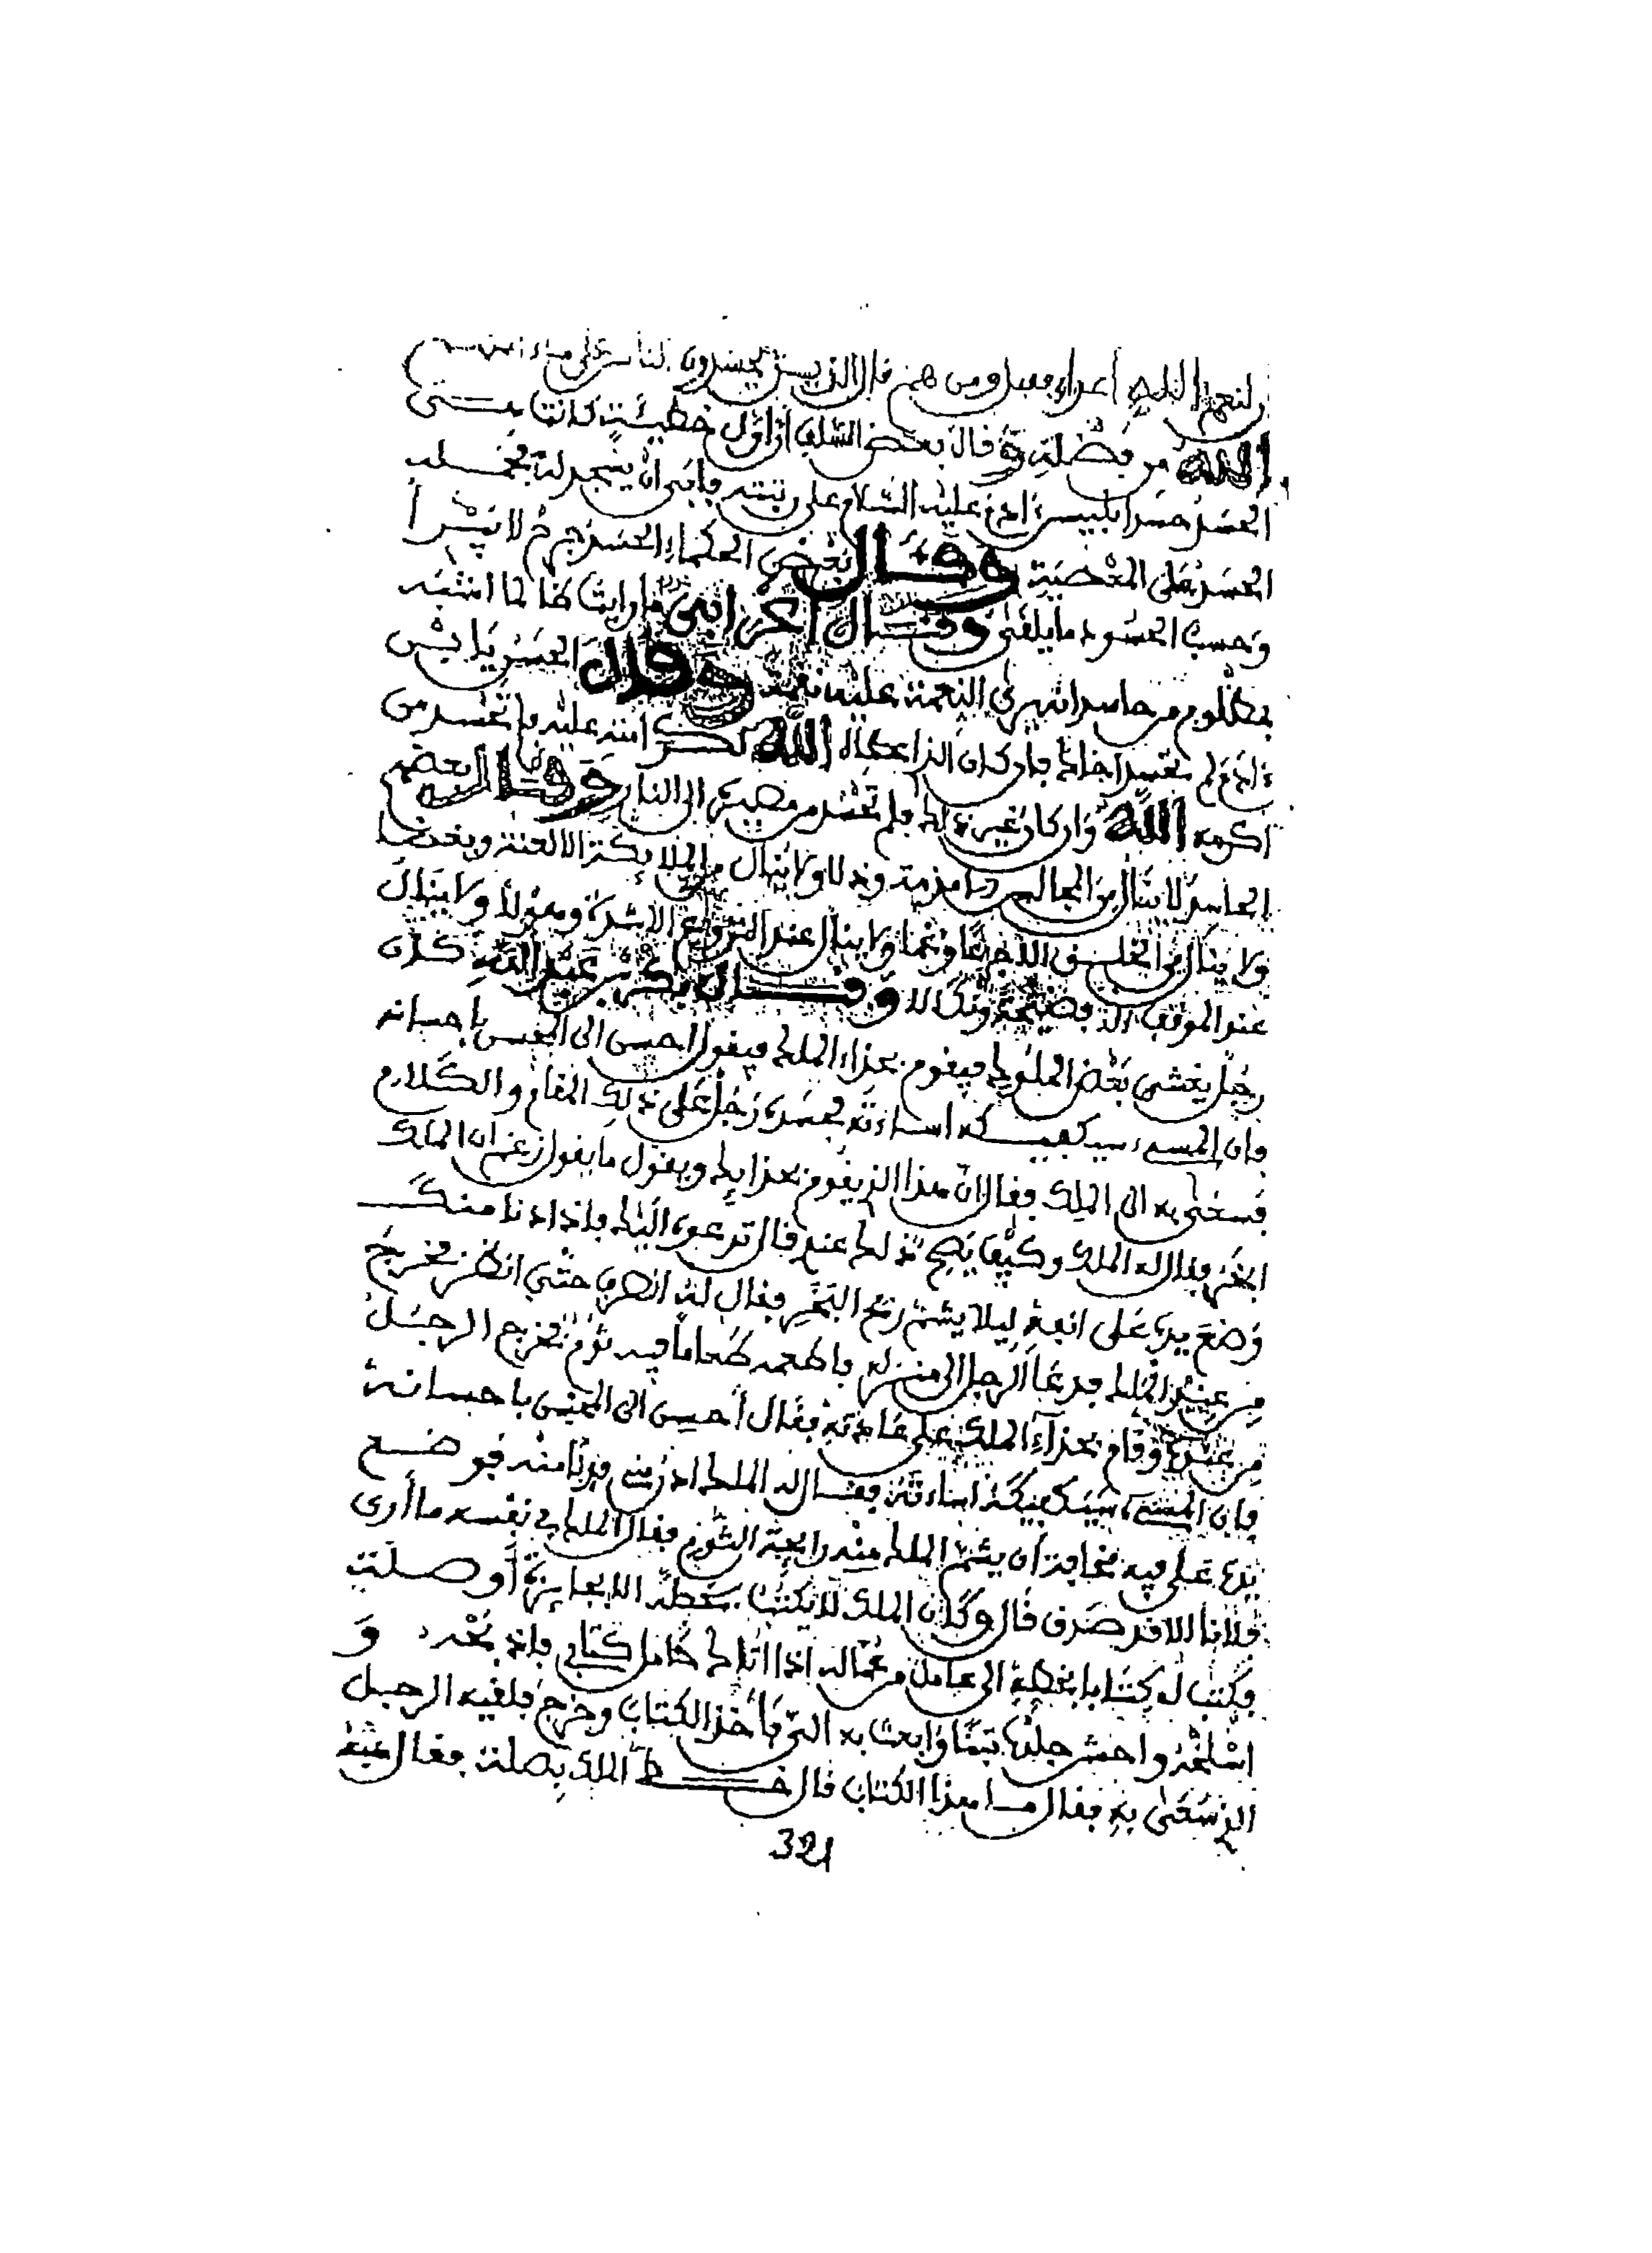 لنعم الله اعداء فقيل ومن هم قال الذين يحسدون الناس على ما ءاتيهم
الله من فضله وقال بعض السلف ان اول خطيئة كانت هي
الحسد حسد ابليس ءادم عليه السلام على رتبته فابى ان يسجد له فحمله
الحسد على المعصية وقال بعض الحكماء الحسد جرح لا يبرا
وحسب الحسود ما يلقى وقال اعرابي ما رايت ظالما اشبه
بمظلوم من حاسد انه يرى النعمة عليه نقمة وقال الحسن يا ابن
ءادم لم تحسد اخاك فان كان الذي اعطاه الله لكرامته عليه فلم تحسد من
اكرمه الله وان كان غير ذلك فلم تحسد من مصيره الى النار وقال بعضهم
الحاسد لا ينال من المجالس الا مذمة وذلا ولا ينال من الملائكة الا لعنة وبغضا
ولا ينال من الخلق الا جزعا وغما ولا ينال عند النزع الا شدة وهولا ولا ينال
عند الموقف الا فضيحة ونكالا وقال بكر بن عبد الله كان
رجل يغشى بعض الملوك فيقوم بحذاء الملك فيقول احسن الى المحسن باحسانه
فان المسيء سيكفيكه اساءته فحسده رجل على ذلك المقام والكلام
فسعى به الى الملك فقال ان هذا الذي يقوم بحذائك ويقول ما يقول زعم ان الملك
ابخر فقال له الملك وكيف يصح ذلك عندي قال تدعوه اليك فاذا دنا منك
وضع يده على انفه ليلا يشم ريح البخر فقال له انصرف حتى انظر فخرج
من عند الملك فدعا الرجل الى منزله فاطعمه طعاما فيه ثوم فخرج الرجل
من عنده وقام بحذاء الملك على عادته فقال احسن الى المحسن باحسانه
فان المسيء سيكفيكه اساءته فقال له الملك ادن مني فدنا منه فوضع
يده على فيه مخافة ان يشم الملك منه رايحة الثوم فقال الملك في نفسه ما ارى
فلانا الا قد صدق قال وكان الملك لا يكتب بخطه الا بجايزة او صلة
فكتب له كتابا بخطه الى عامل من عماله اذا اتاك حامل كتابي فاذبحه و
اسلخه واحش جلده تبنا وابعث به الي فاخذ الكتاب وخرج فلقيه الرجل
الذي سعى به فقال ما هذا الكتاب قال خط الملك بصلة فقال هبه
321